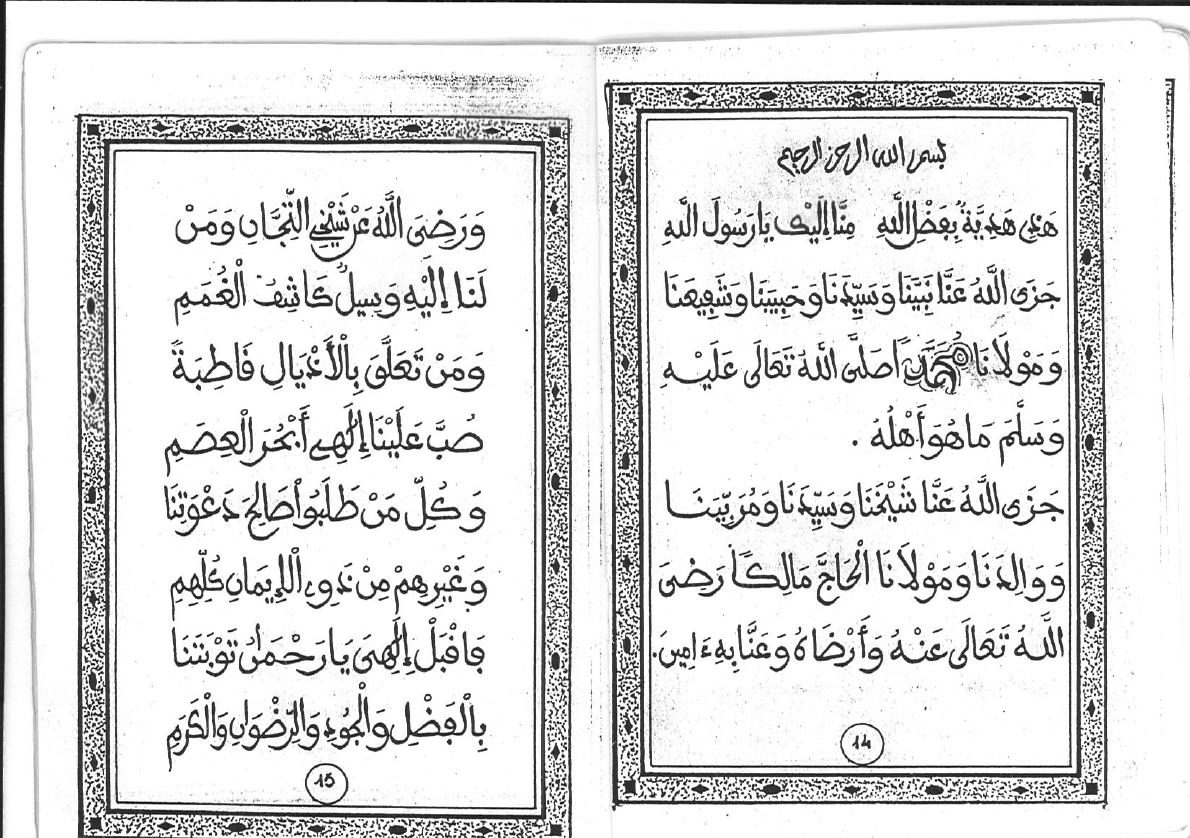 بسم الله الرحمن الرحيم
هَذِي هَدِيَّةٌ بِفَضْلِ اللَّهِ مِنَّا إِلَيْكَ يَا رَسُولَ اللَّهِ
جَزَى اللَّهُ عَنَّا نَبِيَّنَا وَسَيِّدَنَا وَحَبِيبَنَا وَشَفِيعَنَا
وَمَوْلَانَا مُحَمَّدًا صَلَّى اللَّهُ تَعَالَى عَلَيْهِ
وَسَلَّمَ مَا هُوَ أَهْلُهُ .
جَزَى اللَّهُ عَنَّا شَيْخَنَا وَسَيِّدَنَا وَمُرَبِّيَنَا
وَوَالِدَنَا وَمَوْلَانَا الْحَاجَّ مَالِكًا رَضِيَ
اللَّهُ تَعَالَى عَنْهُ وَأَرْضَاهُ وَعَنَّا بِهِ ءَامِينَ.
14
وَرَضِيَ اللَّهُ عَنْ شَيْخِي التِّجَانِ وَمَنْ
لَنَا إِلَيْهِ وَسِيلٌ كَاشِفُ الْغُمَمِ
وَمَنْ تَعَلَّقَ بِالْأَذْيَالِ قَاطِبَةً
صُبَّ عَلَيْنَا إِلَهِي أَبْحُرَ الْعِصَمِ
وَكُلِّ مَنْ طَلَبُوا صَالِحَ دَعْوَتِنَا
وَغَيْرِهِمْ مِنْ ذَوِي الْإِيمَانِ كُلِّهِمِ
فَاقْبَلْ إِلَهِيَ يَا رَحْمَنُ تَوْبَتَنَا
بِالْفَضْلِ وَالْجُودِ وَالرِّضْوَانِ وَالْكَرَمِ
15